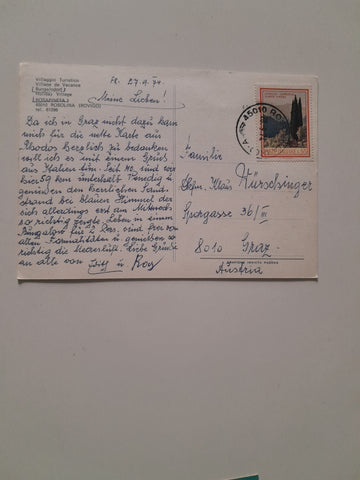 Villaggio Turistico
Village de Vacance
Bungalowdorf
Holiday Village
ROSAPINETA
45010 ROSOLINA (ROVIGO)
Fr. 27.9.74.
Meine Lieben!
Da ich in Graz nicht dazu kam
mich für die nette Karte aus
Rhodos herzlich zu bedanken
will ich es mit einem Gruß
aus Italien tun. Seit sind wir
hier 50 km unterhalb Venedig u.
genießen den herrlichen Sand
strand bei blauem Himmel der
sich allerdings erst am Mittwoch
so richtig zeigte. Leben in einem
Bungalow für 2 Pers. sind frei von
allen Formalitäten u. genießen so
richtig die Meeresluft. Liebe Grüße
an alle von u. Roy
45010 RO
Familie
Klaus Kürschinger
36/III
8010 Graz
Austria